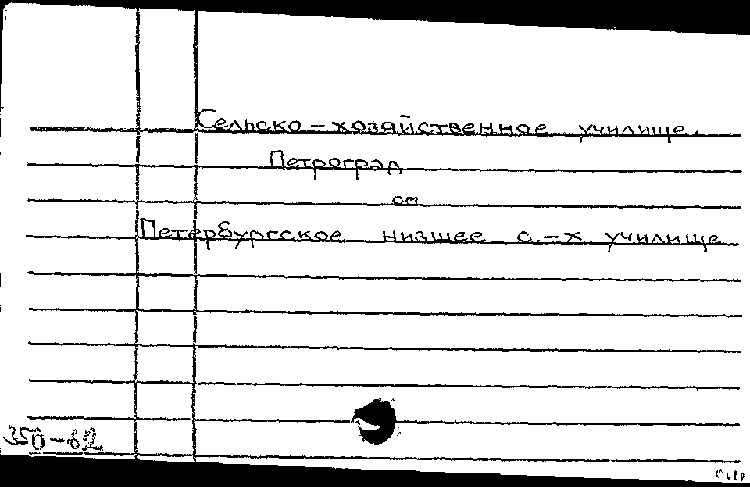 Сельско-хозяйственное училище.
Петроград
см
Петербургское низшее с.-х училище
350-62